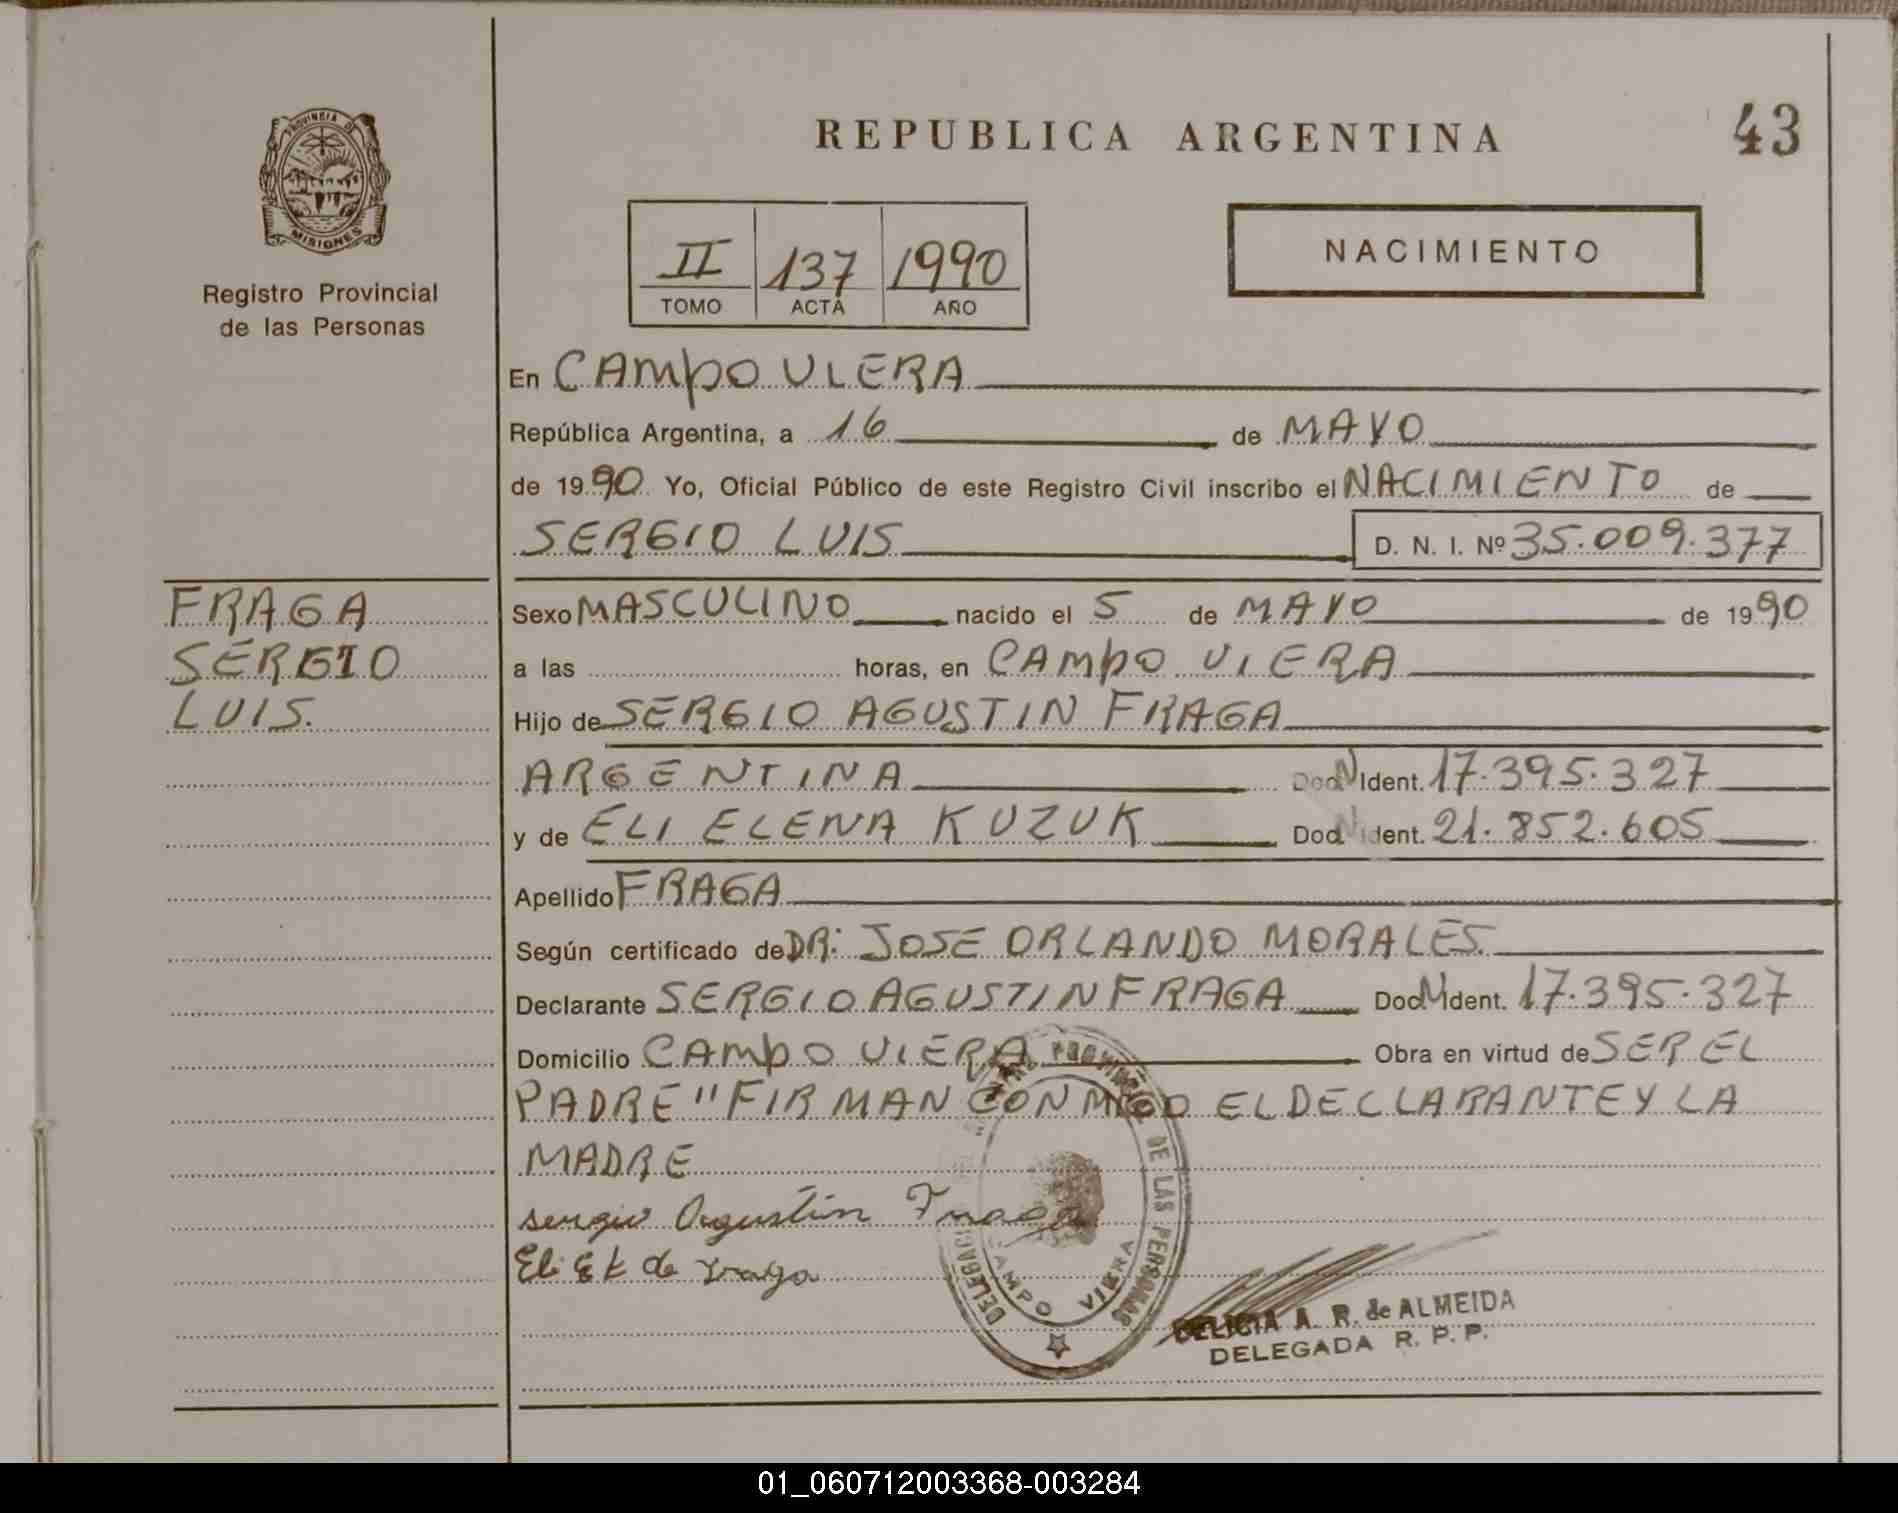 PROVINCIA DE
MISIONES
Registro Provincial
de las Personas
REPUBLICA ARGENTINA
43
II 137 1990
TOMO ACTA AÑO
NACIMIENTO
En CAMPO VIERA
República Argentina, a 16 de MAYO
de 1990 Yo, Oficial Público de este Registro Civil inscribo el NACIMIENTO de
SERGIO LUIS D. N. I. Nº 35.009.377
FRAGA
SERGIO
LUIS.
Sexo MASCULINO nacido el 5 de MAYO de 1990
a las horas, en CAMPO VIERA
Hijo de SERGIO AGUSTIN FRAGA
ARGENTINA Doc. N Ident. 17.395.327
y de ELI ELENA KUZUK Doc. N Ident. 21.852.605
Apellido FRAGA
Según certificado de DR: JOSE ORLANDO MORALES.
Declarante SERGIO AGUSTIN FRAGA Doc. N Ident. 17.395.327
Domicilio CAMPO VIERA Obra en virtud de SER EL
PADRE" FIRMAN CONMIGO EL DECLARANTE Y LA
MADRE
sergio Agustin Fraga
Eli E K de Fraga
PROVINCIAL DE LAS PERSONAS
DELEGACION
CAMPO VIERA
DELICIA A. R. de ALMEIDA
DELEGADA R. P. P.
01_060712003368-003284